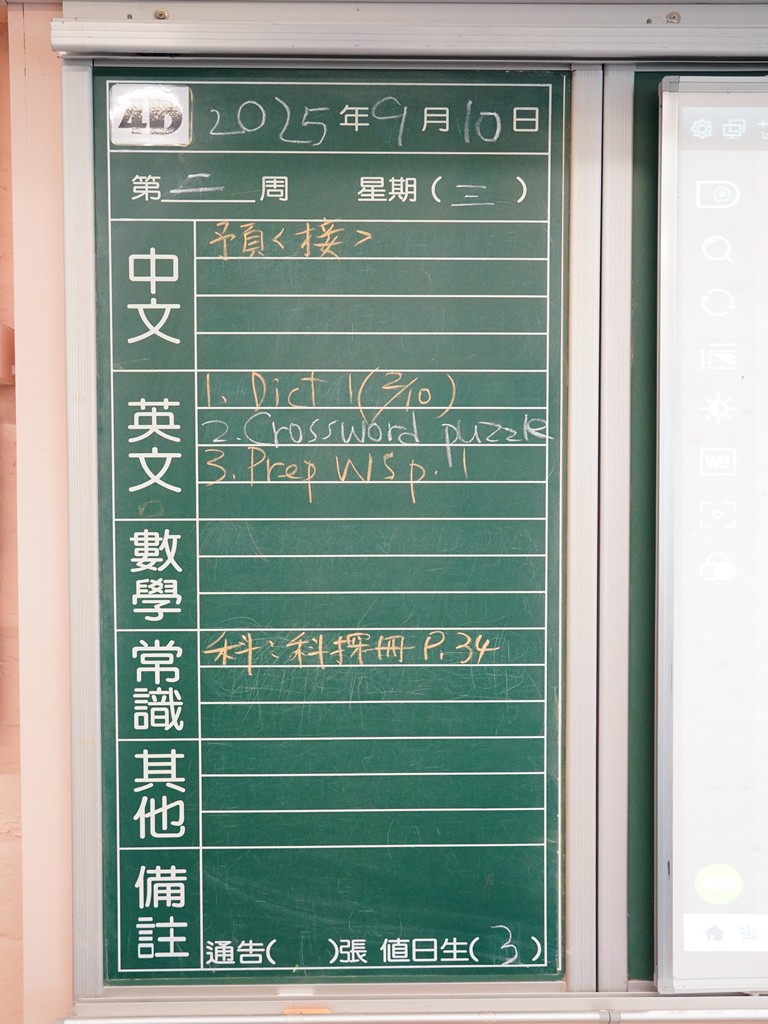 4D 2025年9月10日
第二周 星期(三)
中文
預<接>
英文
1. Dict 1(2/10)
2. Crossword puzzle
3. Prep WS p. 1
數學
常識
科:科探冊 P.34
其他
備註
通告( )張 值日生(3)
WB